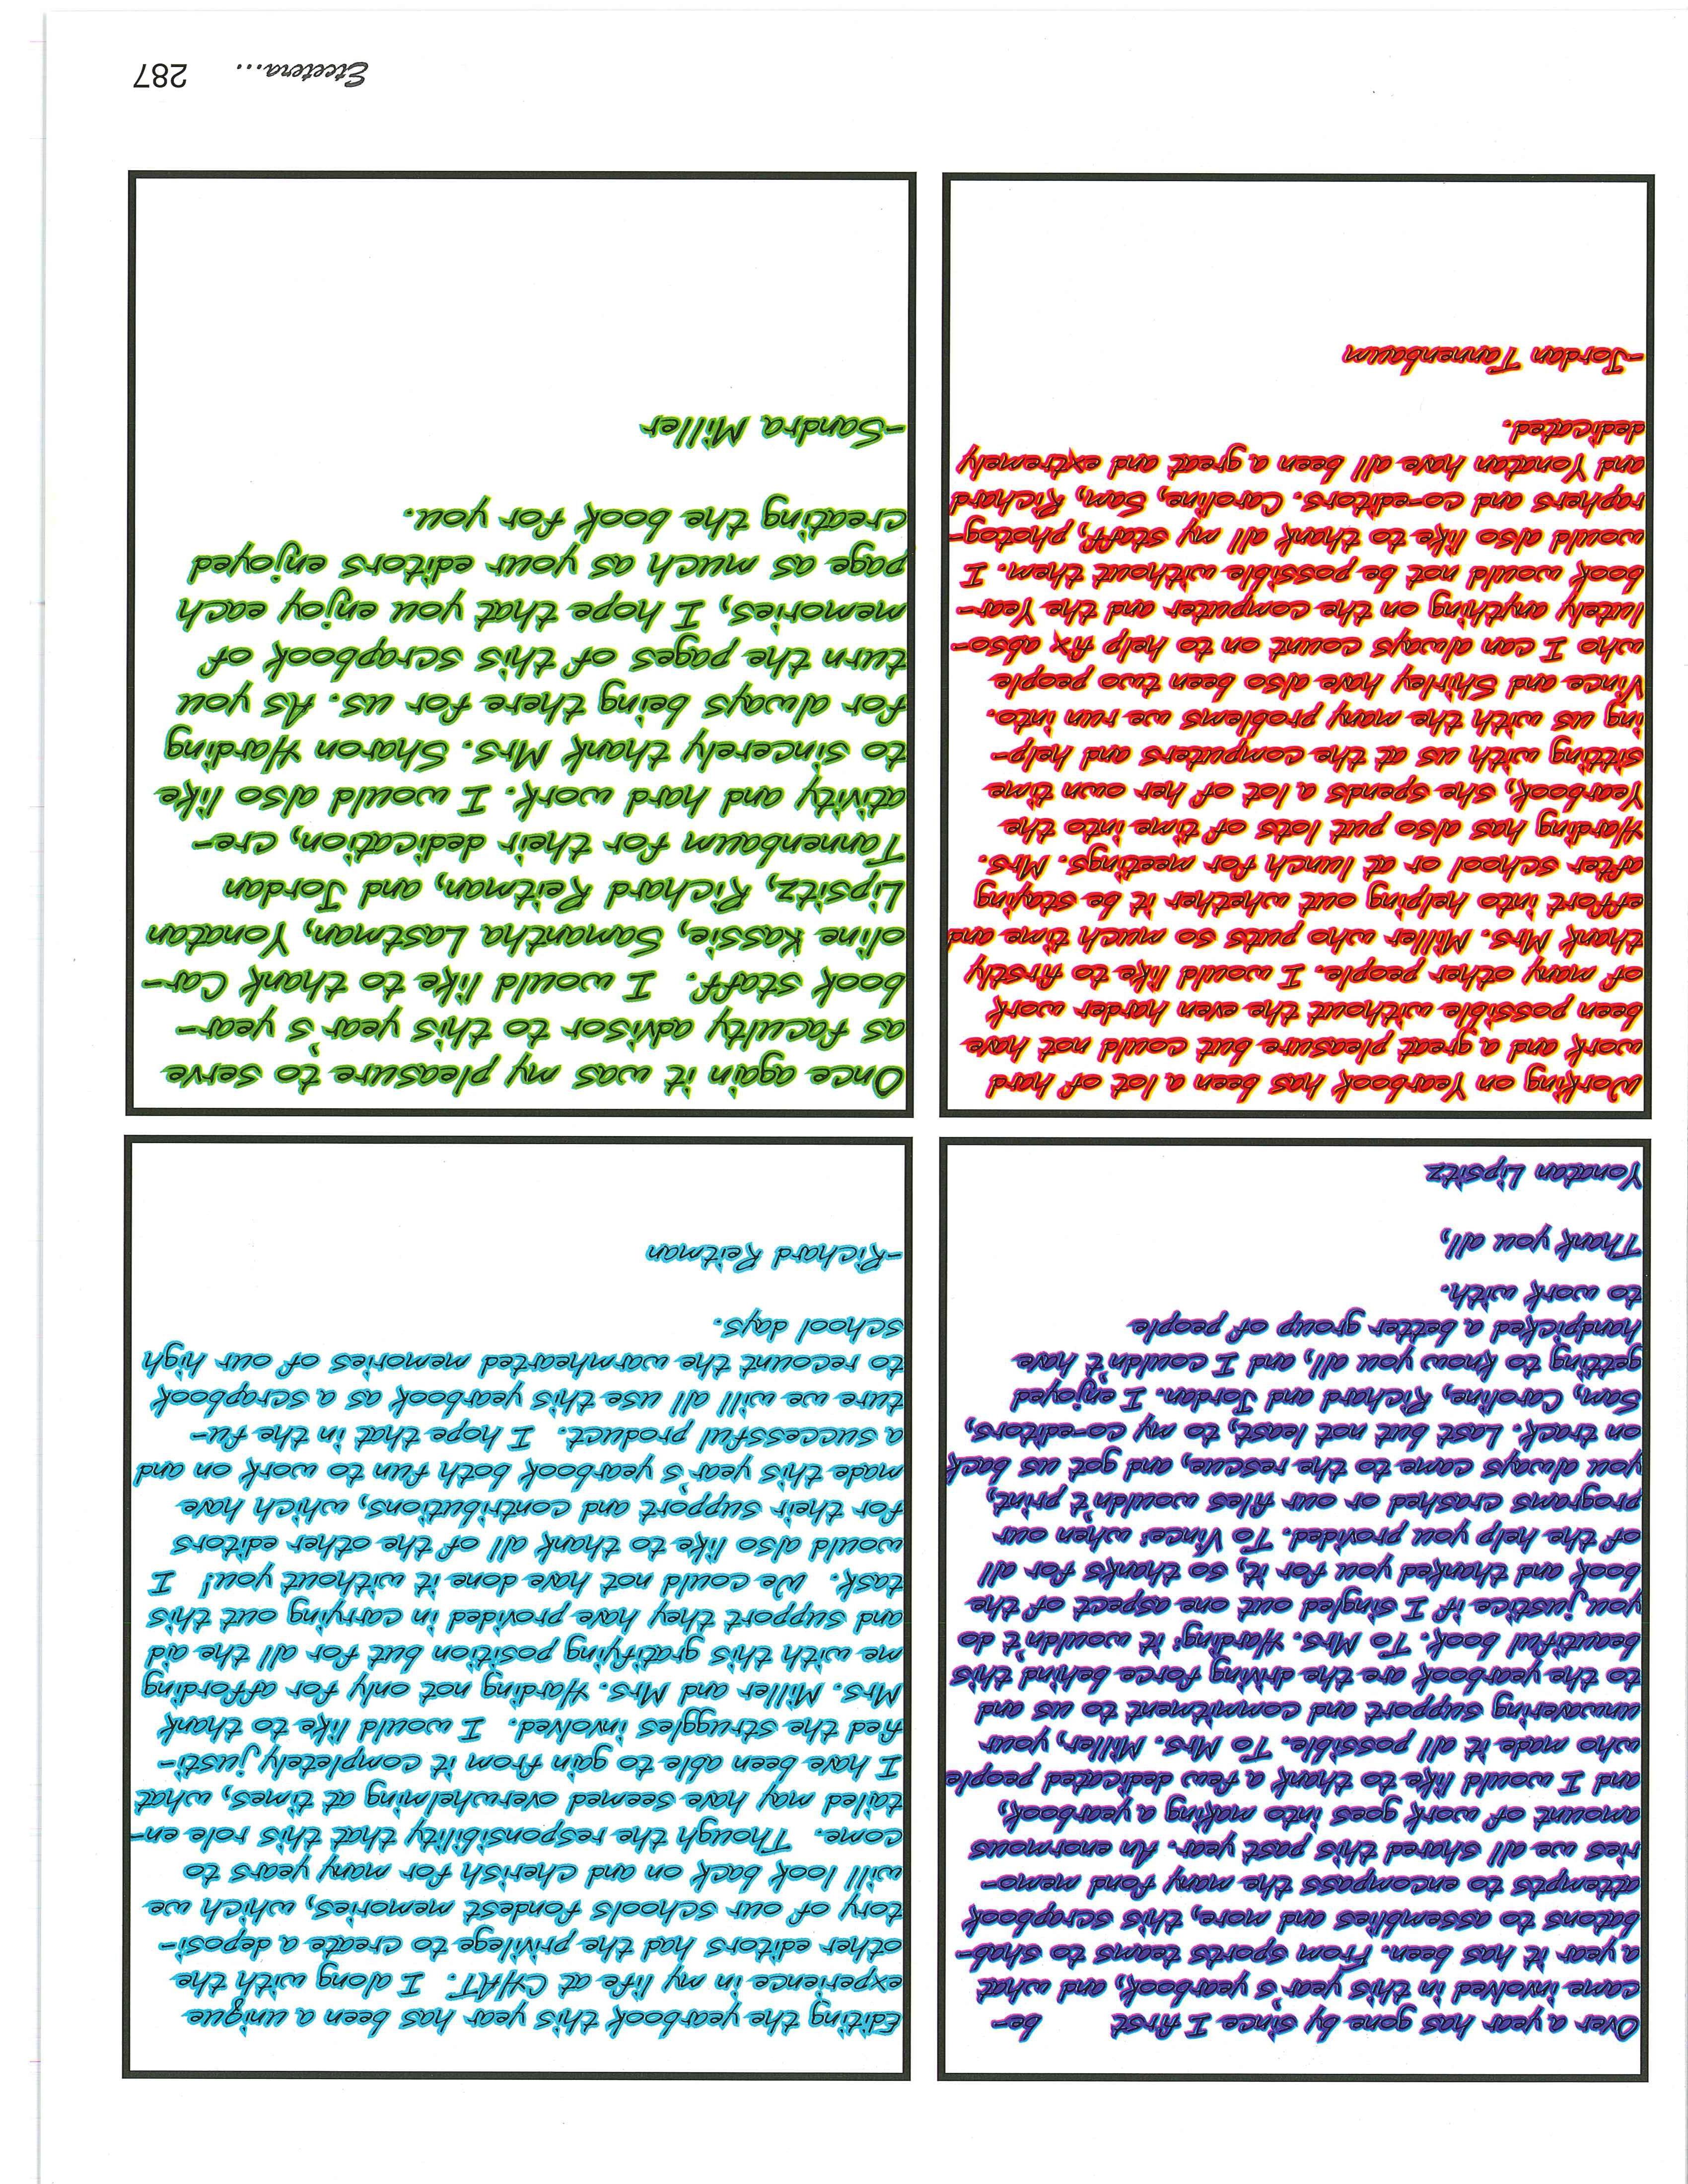 Over a year has gone by since I first be-
came involved in this year's yearbook, and what
a year it has been. From sports teams to shab-
batons to assemblies and more, this scrapbook
attempts to encompass the many fond memo-
ries we all shared this past year. An enormous
amount of work goes into making a yearbook,
and I would like to thank a few dedicated people
who made it all possible. To Mrs. Miller, your
unwavering support and commitment to us and
to the yearbook are the driving force behind this
beautiful book. To Mrs. Harding: it wouldn't do
you justice if I singled out one aspect of the
book and thanked you for it, so thanks for all
of the help you provided. To Vince: when our
programs crashed or our files wouldn't print,
you always came to the rescue, and got us back
on track. Last but not least, to my co-editors,
Sam, Caroline, Richard and Jordan. I enjoyed
getting to know you all, and I couldn't have
handpicked a better group of people
to work with.
Thank you all,
Yonatan Lipsitz
Editing the yearbook this year has been a unique
experience in my life at CHAT. I along with the
other editors had the privilege to create a deposi-
tory of our schools fondest memories, which we
will look back on and cherish for many years to
come. Though the responsibility that this role en-
tailed may have seemed overwhelming at times, what
I have been able to gain from it completely justi-
fied the struggles involved. I would like to thank
Mrs. Miller and Mrs. Harding not only for affording
me with this gratifying position but for all the aid
and support they have provided in carrying out this
task. We could not have done it without you! I
would also like to thank all of the other editors
for their support and contributions, which have
made this year's yearbook both fun to work on and
a successful product. I hope that in the fu-
ture we will all use this yearbook as a scrapbook
to recount the warmhearted memories of our high
school days.
-Richard Reitman
Working on Yearbook has been a lot of hard
work and a great pleasure but could not have
been possible without the even harder work
of many other people. I would like to firstly
thank Mrs. Miller who puts so much time and
effort into helping out whether it be staying
after school or at lunch for meetings. Mrs.
Harding has also put lots of time into the
Yearbook, she spends a lot of her own time
sitting with us at the computers and help-
ing us with the many problems we run into.
Vince and Shirley have also been two people
who I can always count on to help fix abso-
lutely anything on the computer and the Year-
book would not be possible without them. I
would also like to thank all my staff, photog-
raphers and co-editors. Caroline, Sam, Richard
and Yonatan have all been a great and extremely
dedicated.
-Jordan Tannenbaum
Once again it was my pleasure to serve
as faculty advisor to this year's year-
book staff. I would like to thank Car-
oline Kassie, Samantha Lastman, Yonatan
Lipsitz, Richard Reitman, and Jordan
Tannenbaum for their dedication, cre-
ativity and hard work. I would also like
to sincerely thank Mrs. Sharon Harding
for always being there for us. As you
turn the pages of this scrapbook of
memories, I hope that you enjoy each
page as much as your editors enjoyed
creating the book for you.
-Sandra Miller
Etcetera... 287